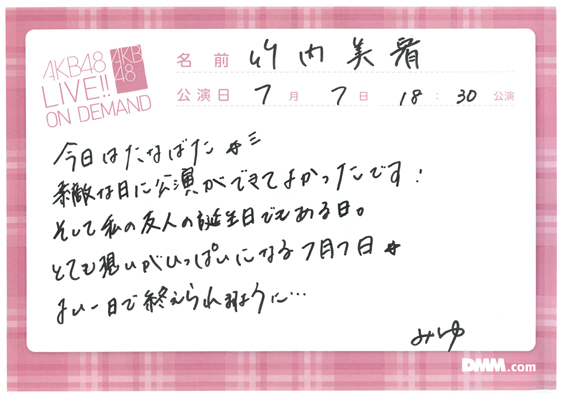 AKB48
LIVE!!
ON DEMAND
AKB
48
名前 竹内美宥
公演日 7月7日 18:30公演
今日はたなばた☆彡
素敵な日に公演ができてよかったです!
そして私の友人の誕生日でもある日。
とても想いがいっぱいになる7月7日☆
よい一日で終えられますように…
みゆ
DMM.com